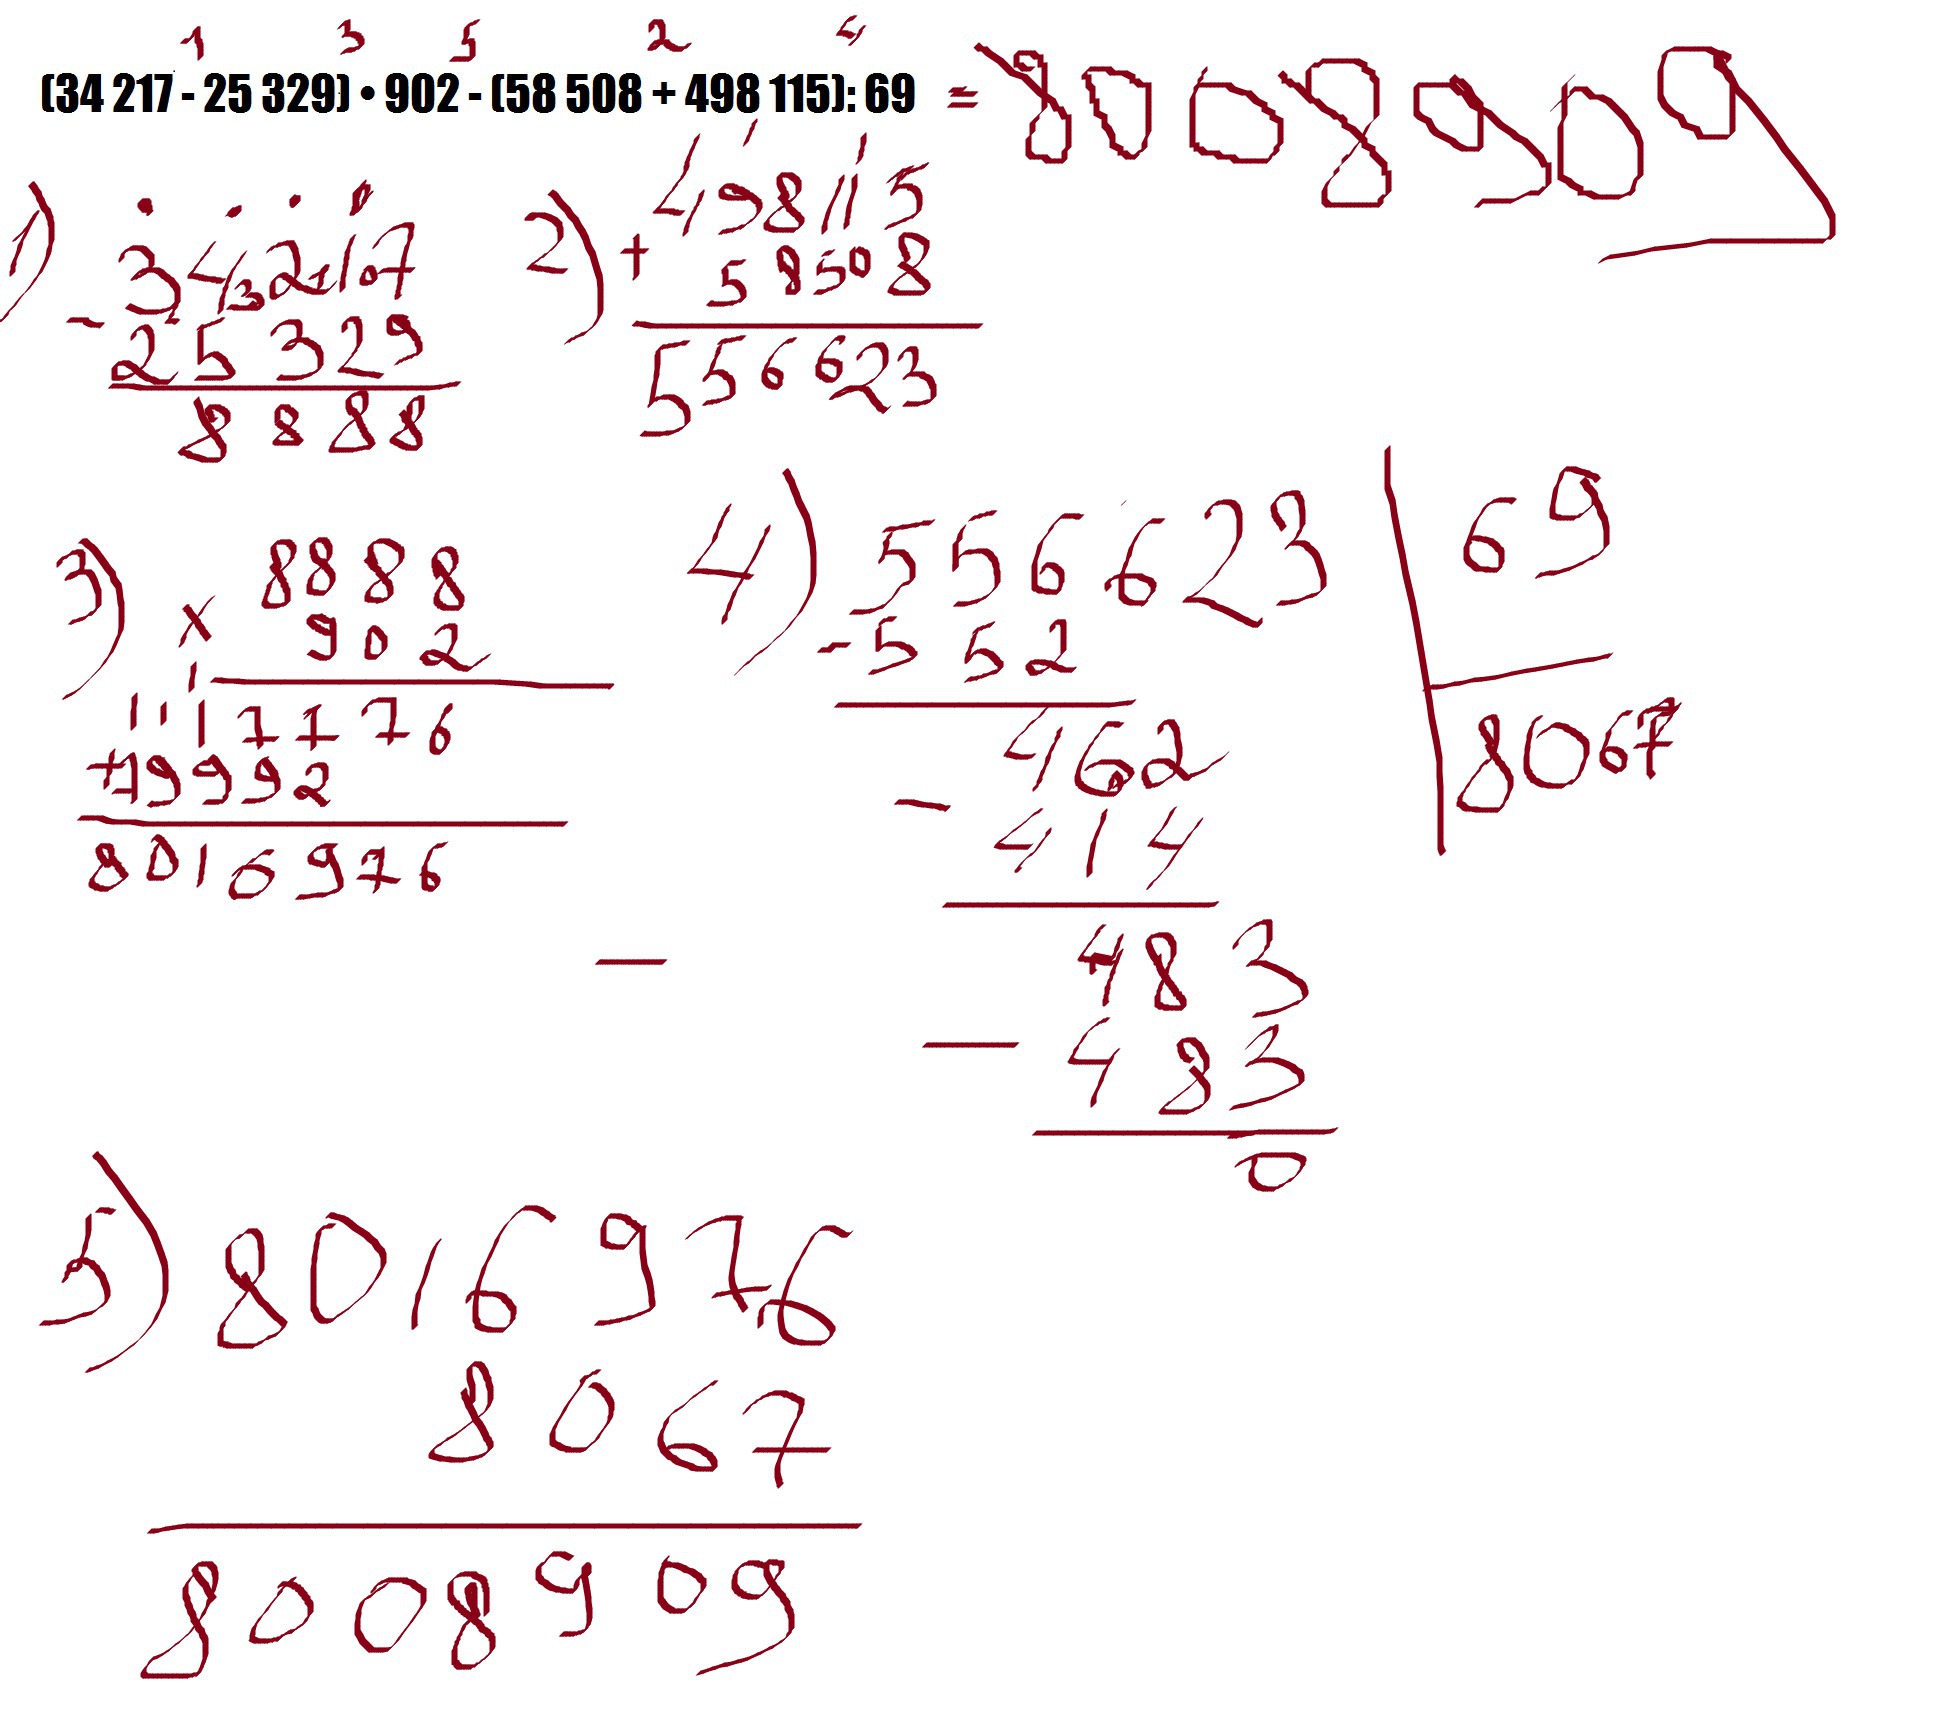 1 3 5 2 4
(34 217 - 25 329) • 902 - (58 508 + 498 115): 69 = 8008909
1)
34217
-
25329
8888
2)
498115
+
58508
556623
3)
8888
x
902
17776
+79992
8016976
4)
556623 69
-552 8067
462
-
414
483
-
483
0
-
5)
8016976
8067
8008909